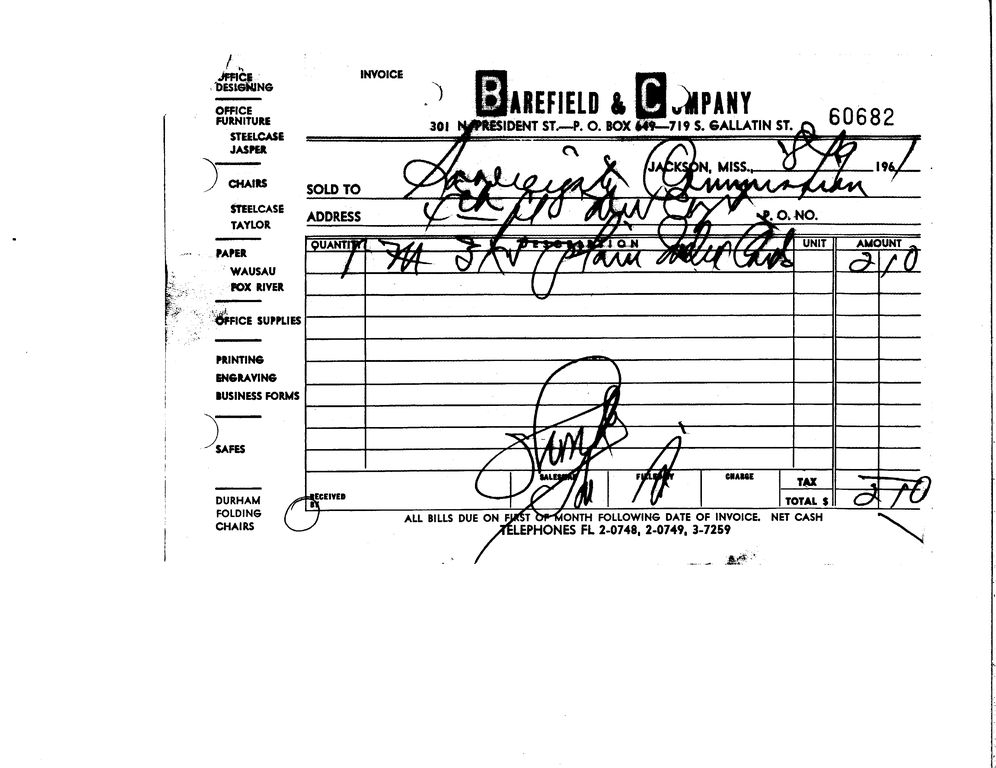 INVOICE
BAREFIELD & COMPANY
301 N. PRESIDENT ST.—P. O. BOX 649—719 S. GALLATIN ST.
60682
JACKSON, MISS., 8/9 1961
SOLD TO Sovereignty Commission
ADDRESS P. O. NO.
QUANTITY DESCRIPTION UNIT AMOUNT
1 M 3 X 5 Plain Index Cards 2 10
SALESMAN FILLED BY CHARGE TAX
RECEIVED BY
TOTAL $ 2 10
ALL BILLS DUE ON FIRST OF MONTH FOLLOWING DATE OF INVOICE. NET CASH
TELEPHONES FL 2-0748, 2-0749, 3-7259
OFFICE
DESIGNING
OFFICE
FURNITURE
STEELCASE
JASPER
CHAIRS
STEELCASE
TAYLOR
PAPER
WAUSAU
FOX RIVER
OFFICE SUPPLIES
PRINTING
ENGRAVING
BUSINESS FORMS
SAFES
DURHAM
FOLDING
CHAIRS